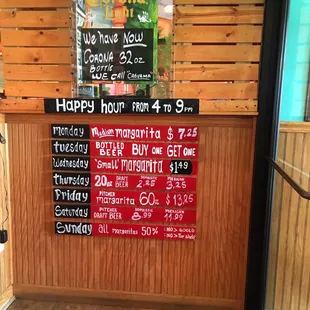 Corona
Light
We have NOW
CORONA 32oz
Bottle
WE CALL
Happy hour FROM 4 TO 9 PM
Monday Medium margarita $ 7.25
Tuesday BOTTLED BEER BUY ONE GET ONE
Wednesday "Small" MARGARITA $1.49
Thursday 20oz DRAFT BEER DOMESTIC 2.25 MEXICAN 3.25
Friday PITCHER margarita 60oz $13.25
Saturday PITCHER DRAFT BEER DOMESTIC 8.99 MEXICAN 11.99
Sunday all margaritas 50%